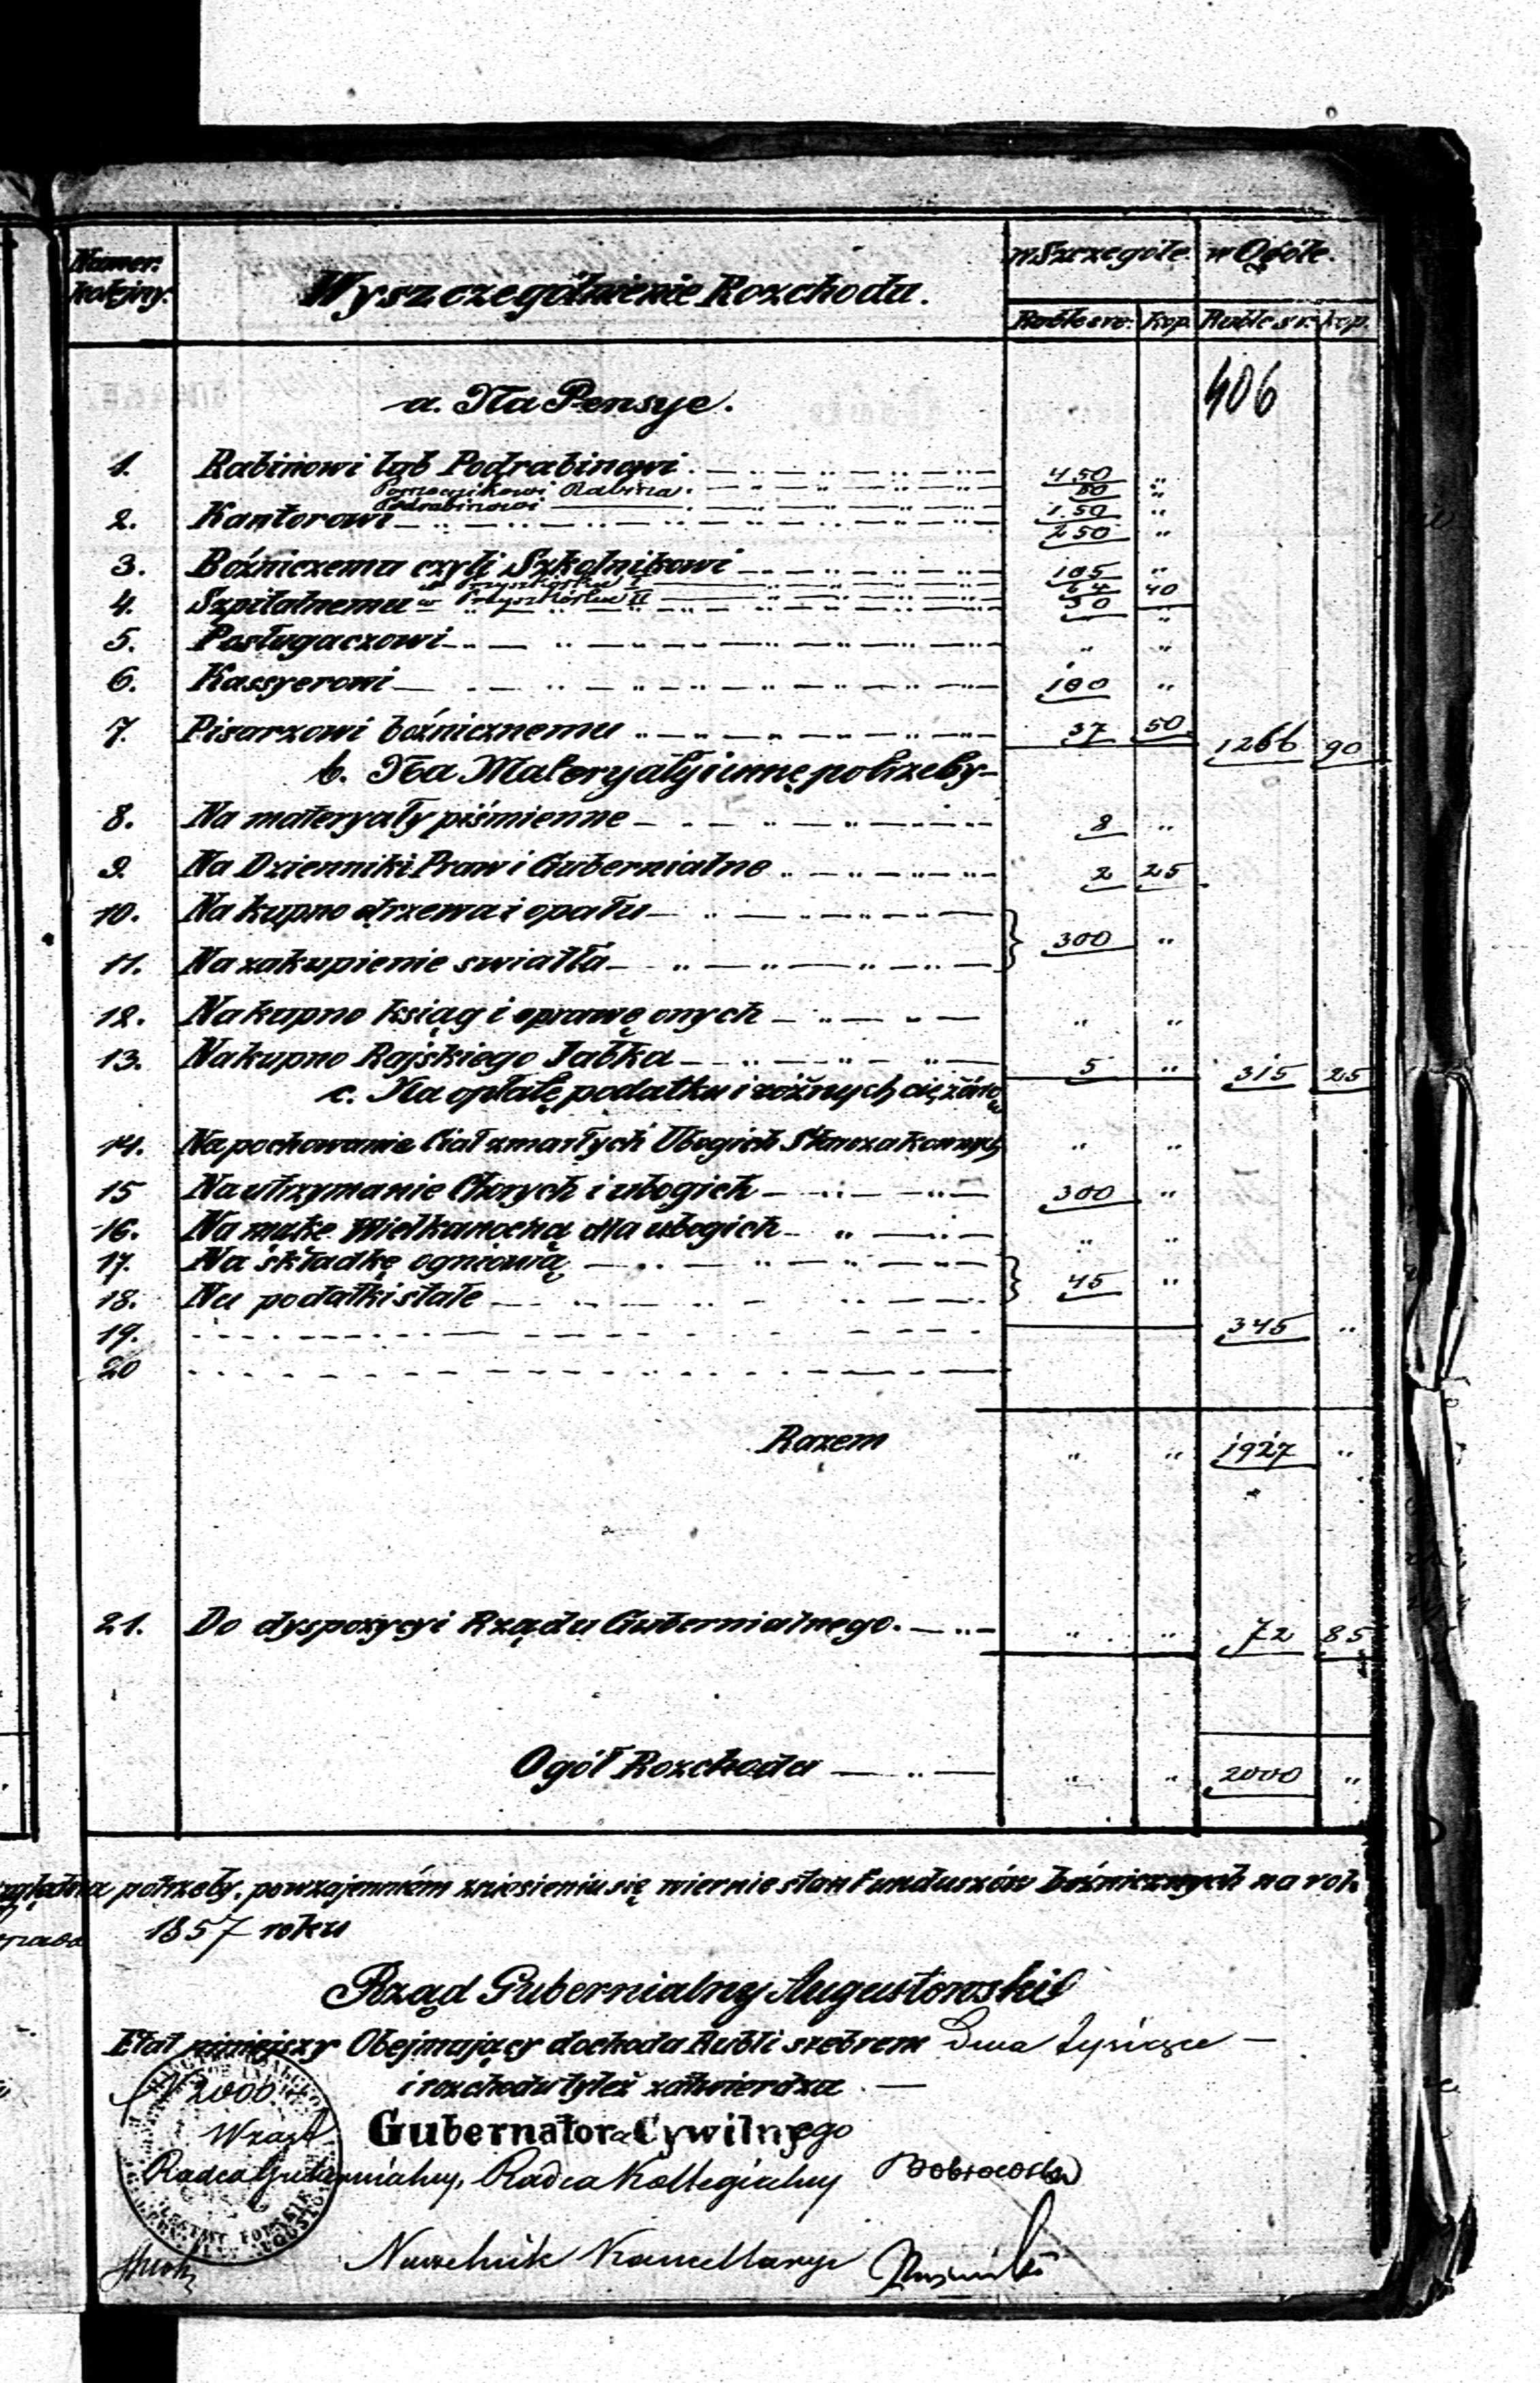 Numer kolejny. Wyszczególnienie Rozchodu. w Szczególe. w Ogóle.
Ruble sre. Kop. Ruble sr. kop.
406
a. Na Pensye.
1. Rabinowi lub Podrabinowi 450 "
Pomocnikowi Rabina 60 "
Podrabinowi 150 "
2. Kantorowi 250 "
3. Bóźniczemu czyli Szkolnikowi 105 "
w Przyszkółku I 64 40
4. Szpitalnemu w Przyszkółku II 50 "
5. Posługaczowi " "
6. Kassyerowi 100 "
7. Pisarzowi bożnicznemu 37 50 1266 90
b. Na Materyały i inne potrzeby
8. Na materyały piśmienne 8 "
9. Na Dzienniki Praw i Gubernialne 2 25
10. Na kupno drzewa i opału
300 "
11. Na zakupienie swiatła
12. Na kupno ksiąg i oprawę onych " "
13. Na kupno Rajskiego Jabłka 5 " 315 25
c. Na opłatę podatku i różnych ciężarów
14. Na pochowanie Ciał zmarłych Ubogich Starozakonnych " "
15 Na utrzymanie Chorych i ubogich 300 "
16. Na mąkę Wielkanocną dla ubogich " "
17. Na składkę ogniową
45 "
18. Na podatki stałe
19. 345 "
20
Razem " " 1927 "
21. Do dyspozycyi Rządu Gubernialnego. " " 72 85
Ogół Rozchodu " " 2000 "
potrzeby, powzajemném zniesieniu się, miernie stan Funduszów bóżnicznych na rok
1857 roku
Rząd Gubernialny Augustowski
Etat niniejszy Obejmujący dochodu Rubli srebrem Dwa tysiące
2000
i rozchodu tyleż zatwierdza
Gubernatora Cywilnego
Radca Gubernialny, Radca Kollegialny
Naczelnik Kancellaryi